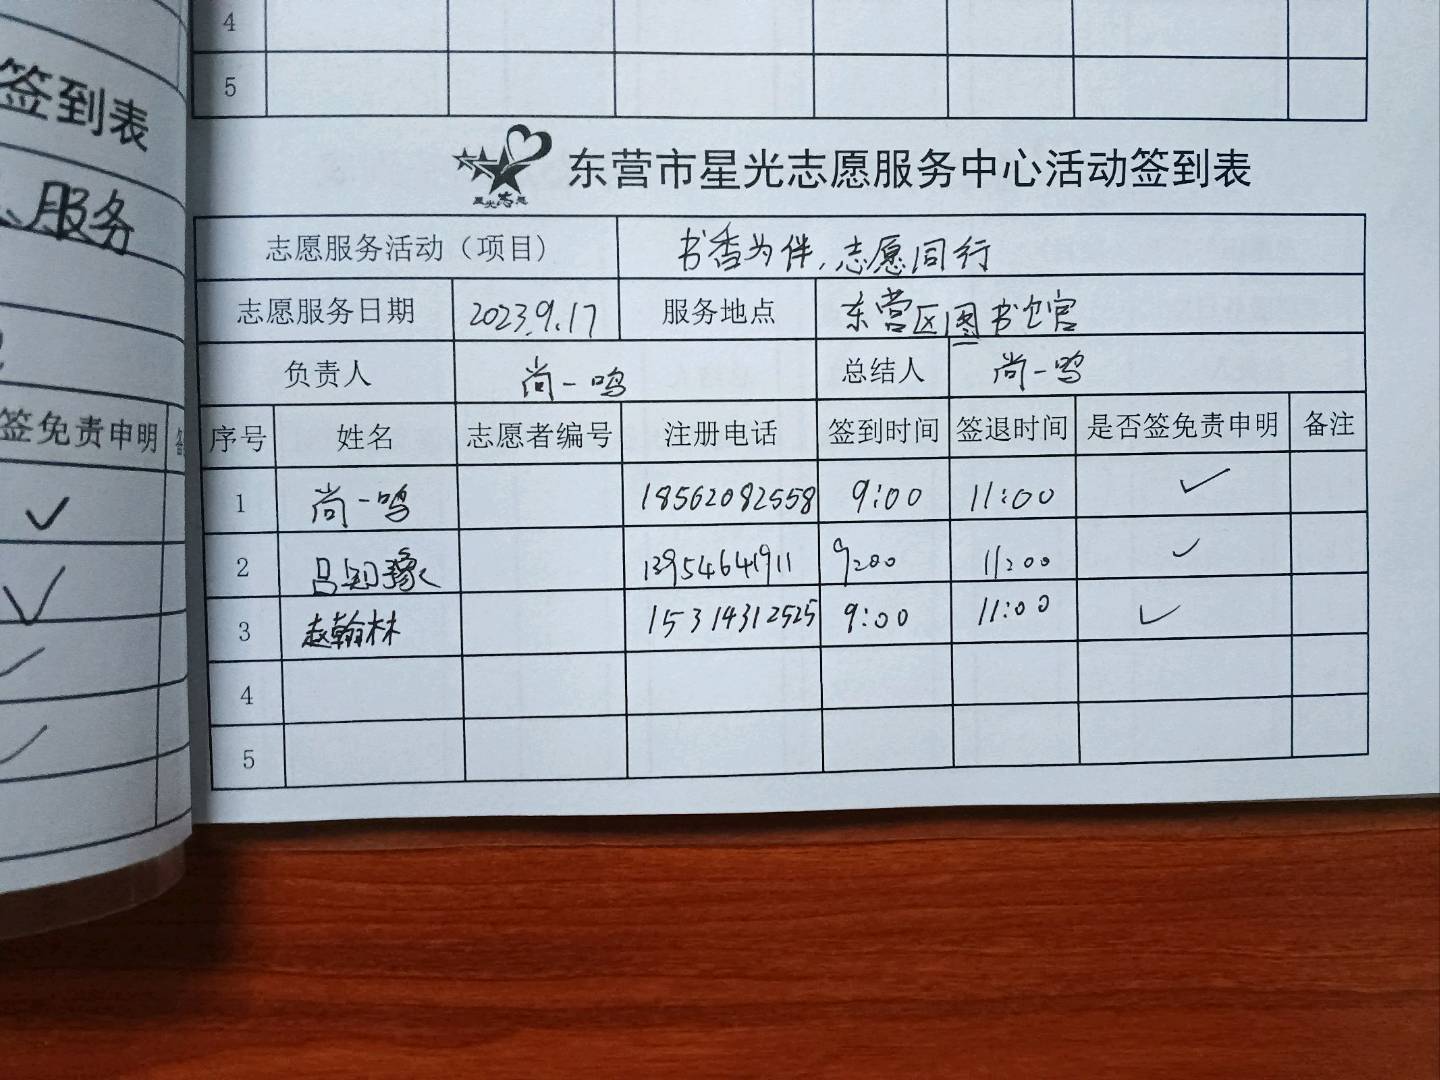 4
5
签到表
服务
签免责申明
星光志愿
东营市星光志愿服务中心活动签到表
志愿服务活动（项目） 书香为伴,志愿同行
志愿服务日期 2023.9.17 服务地点 东营区图书馆
负责人 尚一鸣 总结人 尚一鸣
序号 姓名 志愿者编号 注册电话 签到时间 签退时间 是否签免责申明 备注
1 尚一鸣 18562082558 9:00 11:00 ✓
2 吕知豫 13954641911 9:00 11:00 ✓
3 赵翰林 15314312525 9:00 11:00 ✓
4
5